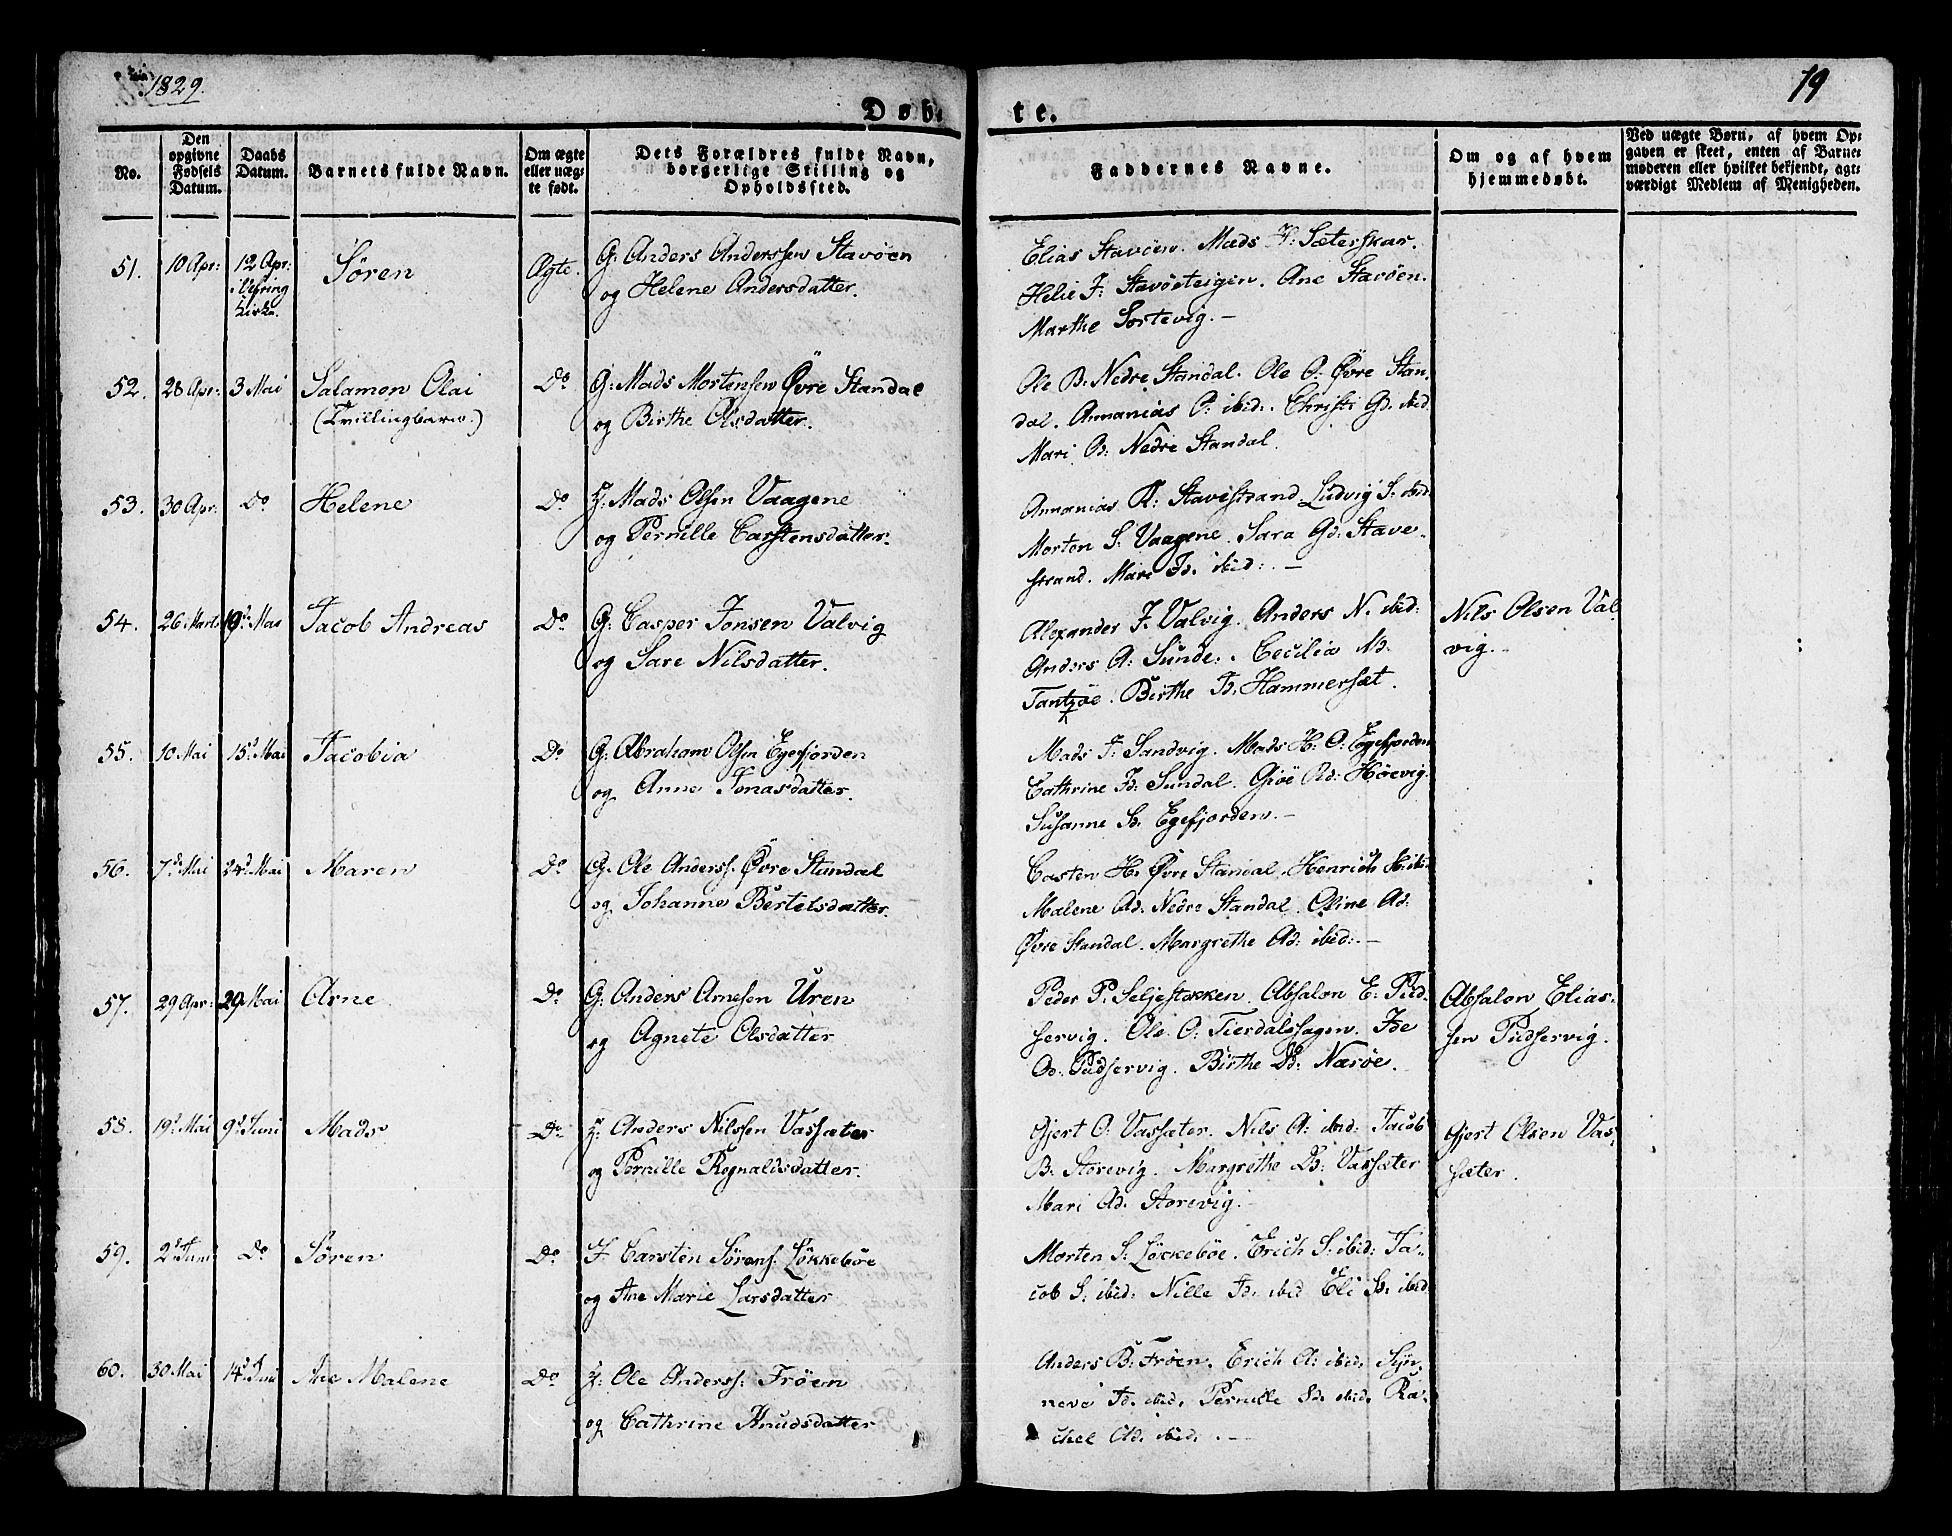 1829.
19
Døb- te.
No.
Den opgivne Fødsels Datum.
Daabs Datum.
Barnets fulde Navn.
Om ægte eller uægte født.
Dets Forældres fulde Navn, borgerlige Stilling og Opholdssted.
Faddernes Navne.
Om og af hvem hjemmedøbt.
Ved uægte Børn, af hvem Opgaven er skeet, enten af Barnemoderen eller hvilket bekjendt, agtværdigt Medlem af Menigheden.
51. 10 Apr: 12 Apr: i Vefring Kirke. Søren Ægte. G: Anders Anderssen Stavøen
og Helene Andersdatter.
Elias Stavöen. Mads J: Sæterskar.
Helie J: Stavöeteigen. Ane Stavöen.
Marthe Sortevig. —
52. 28 Apr: 3 Mai Salamon Olai (Tvillingbarn.) Do G: Mads Mortensen Övre Standal
og Birthe Olsdatter.
Ole B: Nedre Standal. Ole O: Øvre Stan-
dal. Annanias O: ibid:. Christi Gd. ibid.
Mari Od: Nedre Standal.
53. 30 Apr: Do Helene Do J: Mads Olsen Vaagene
og Pernille Carstensdatter.
Annanias R: Stavestrand. Ludvig S: ibid:
Morten S: Vaagene. Sara Gd: Stave-
strand. Mari Jd. ibid:. —
54. 26 Marts 10d Mai Jacob Andreas Do G: Casper Jonsen Valvig
og Sare Nilsdatter.
Alexander J. Valvig. Anders N. ibid:
Anders A: Sunde:. Cecilia Md.
Tantzöe. Birthe Jd. Hammerset.
Nils Olsen Val-
vig.
55. 10 Mai 15d Mai Jacobia Do G: Abraham Olsen Egefjorden
og Anne Jonasdatter.
Mads J: Sandvig. Mads H: O: Egefjorden
Cathrine Jd: Sundal. Givö Rd: Höevig.
Susanne Sd. Egefjorden. —
56. 7d Mai 24d Mai Maren Do G. Ole Anderss. Øvre Standal
og Johanne Bertelsdatter.
Casten H: Øvre Standal. Henrich H: ibi:
Malene Ad: Nedre Standal. Oline Ad:
Øvre Standal. Margrethe Ad: ibid:. —
57. 29 Apr: 29 Mai Arne Do G: Anders Arnesen Uren
og Agnete Olsdatter
Peder P. Seljestokken. Absalon E: Pud-
servig. Ole O: Fierdalshagen. Ide
Od: Pudservig. Birthe Dd: Nærøe.
Absalon Elias-
sen Pudservig.
58. 19d Mai 9d Juni Mads Do J: Anders Nilssen Vassæter
og Pernille Rognaldsdatter.
Gjert O: Vassæter. Nils A: ibid: Jacob
B: Storevig. Margrethe Dd: Vassæter
Mari Ad. Storevig. —
Gjert Olsen Vas-
sæter.
59. 2d Juni Do Søren Do J Carsten Sörens. Løkkebøe
og Ane Marie Larsdatter
Morten S: Løkkebøe. Erich S: ibid: Ja-
cob S: ibid: Nille Jd: ibid Eli Sd. ibid:
60. 30 Mai 14d Juni Ane Malene Do J: Ole Anderss: Frøen
og Cathrine Knudsdatter
Anders B: Frøen. Erich A: ibid. Syn-
neve Jd. ibid. Pernille Sd. ibid. Ra-
chel Ad. ibid. . —